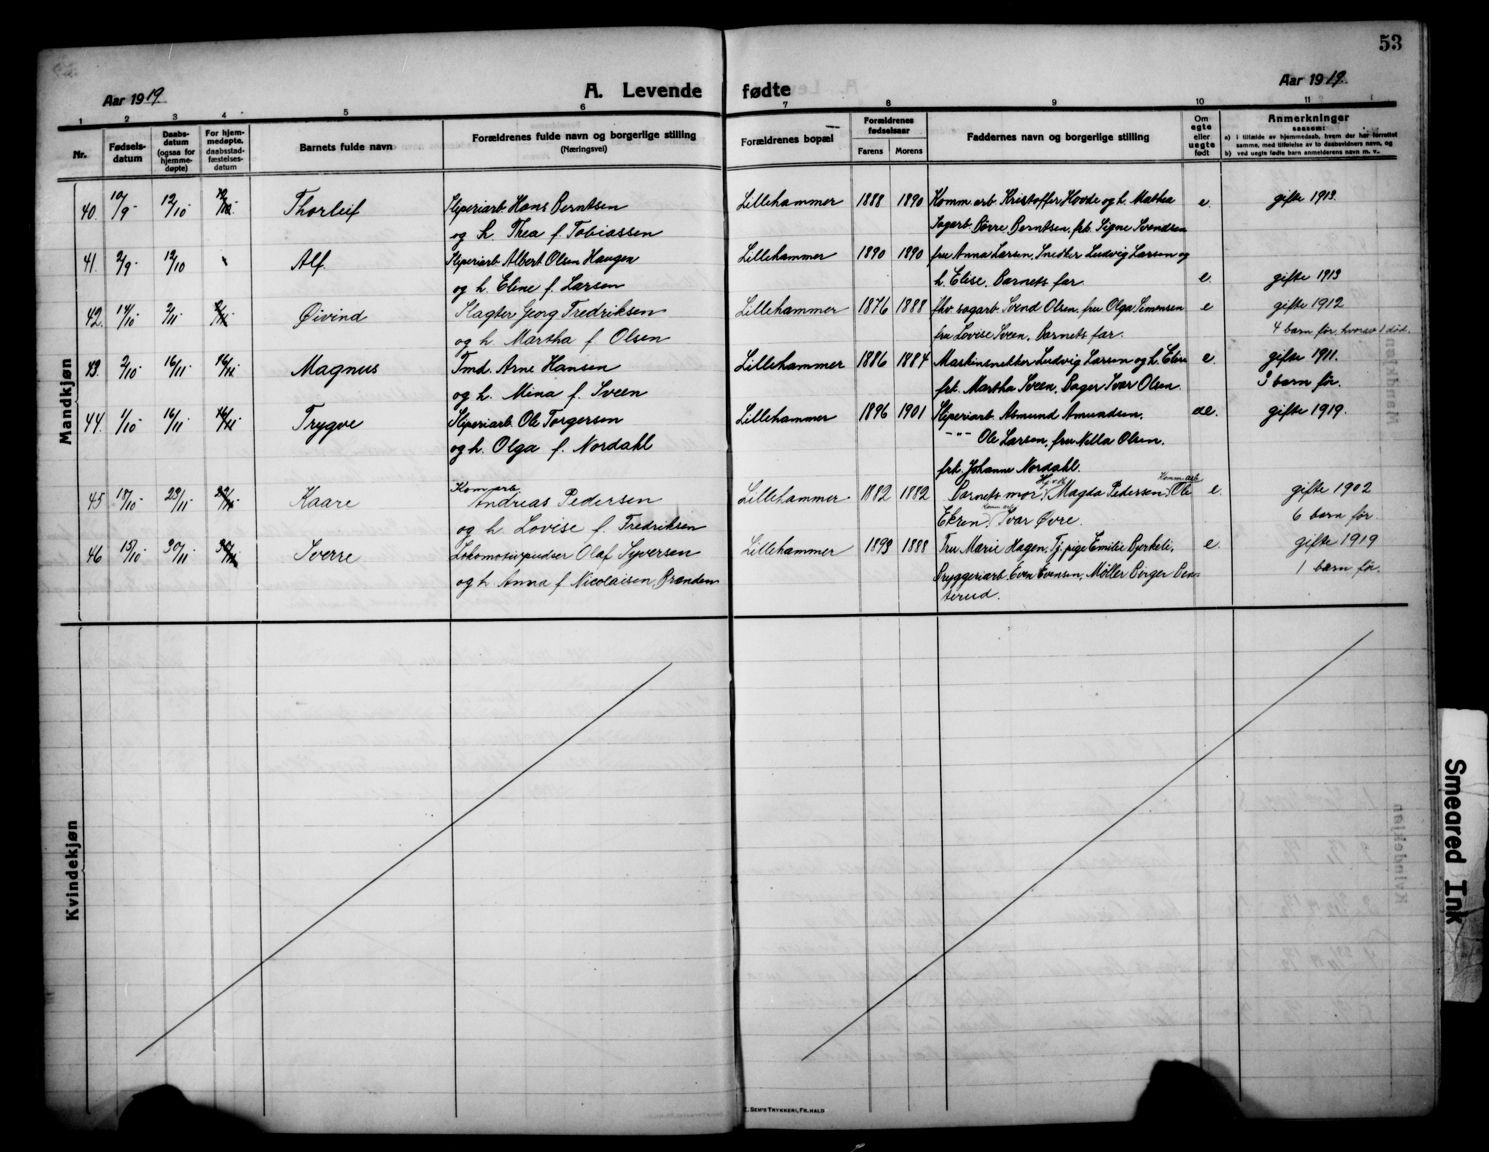 53
Aar 1919.
A. Levende fødte
Aar 1919.
1 2 3 4 5 6 7 8 9 10 11
Nr.
Fødsels-
datum
Daabs-
datum
(ogsaa for
hjemme-
døpte)
For hjem-
medøpte,
daabsstad-
fæstelses-
datum
Barnets fulde navn
Forældrenes fulde navn og borgerlige stilling
(Næringsvei)
Forældrenes bopæl
Forældrenes
fødselsaar
Farens Morens
Faddernes navn og borgerlige stilling
Om
egte
eller
uegte
født
Anmerkninger
saasom:
a) i tilfælde av hjemmedaab, hvem der har forrettet
samme, med tilføielse av to daabsvidners navn, og
b) ved uegte fødte barn anmelderens navn m. v.
Mandkjøn
40. 10/9 12/10 Thorleif Sliperiarb. Hans Berntsen Lillehammer 1888 1890 Komm. arb. Kristoffer Hovde og h. Mathea e. gifte 1913.
og h. Thea f. Tobiassen Sagarb. Børre Berntsen, frk. Signe Svendsen
41. 2/9 12/10 Alf. Sliperiarb. Albert Olsen Haugen Lillehammer 1890 1890 fru Anna Larsen, Snedker Ludvig Larsen og
og h. Elene f. Larsen h. Elise. Barnets far. e. gifte 1913
42. 14/10 2/11 Øivind Slagter Georg Fredriksen Lillehammer 1876 1888 fhv. sagarb. Svend Olsen, fru Olga Simensen e gifte 1912
og h. Martha f. Olsen fru Lovise Sveen. Barnets far. 4 barn før, hvorav 1 død.
43. 2/10 16/11 16/11 Magnus Tmd. Arne Hansen Lillehammer 1886 1884 Maskinsnekker Ludvig Larsen og h. Elise e. gifte 1911.
og h. Mina f. Sveen frk. Martha Sveen, Sager Ivar Olsen 3 barn før.
44. 1/10 16/11 16/11 Trygve Sliperiarb. Ole Torgersen Lillehammer 1896 1901 Sliperiarb. Asmund Amundsen, gifte 1919.
og h. Olga f. Nordahl " Ole Larsen, fru Nilla Olsen.
frk. Johanne Nordahl.
45 23/11 Kaare Kom.arb. Andreas Pedersen Lillehammer. 1882 1882 Barnets mor, Magda Pedersen, Komm.arb. Ole e. gifte 1902
og h. Lovise f. Fredriksen Ekren, Kom. arb. Ivar Øvre. 6 barn før
46 15/10 30/11 Sverre Lokomotivpudser Olaf Syversen Lillehammer 1893 1888 Fru Marie Hagen, Tj. pige Emilie Bjerkeli, e. gifte 1919
og h. Anna f. Nicolaisen Branden Bryggeriarb. Even Evensen, Møller Birger 1 barn før.
Kvindekjøn
SEM'S TRYKKERI, FR.HALD
Smeared Ink